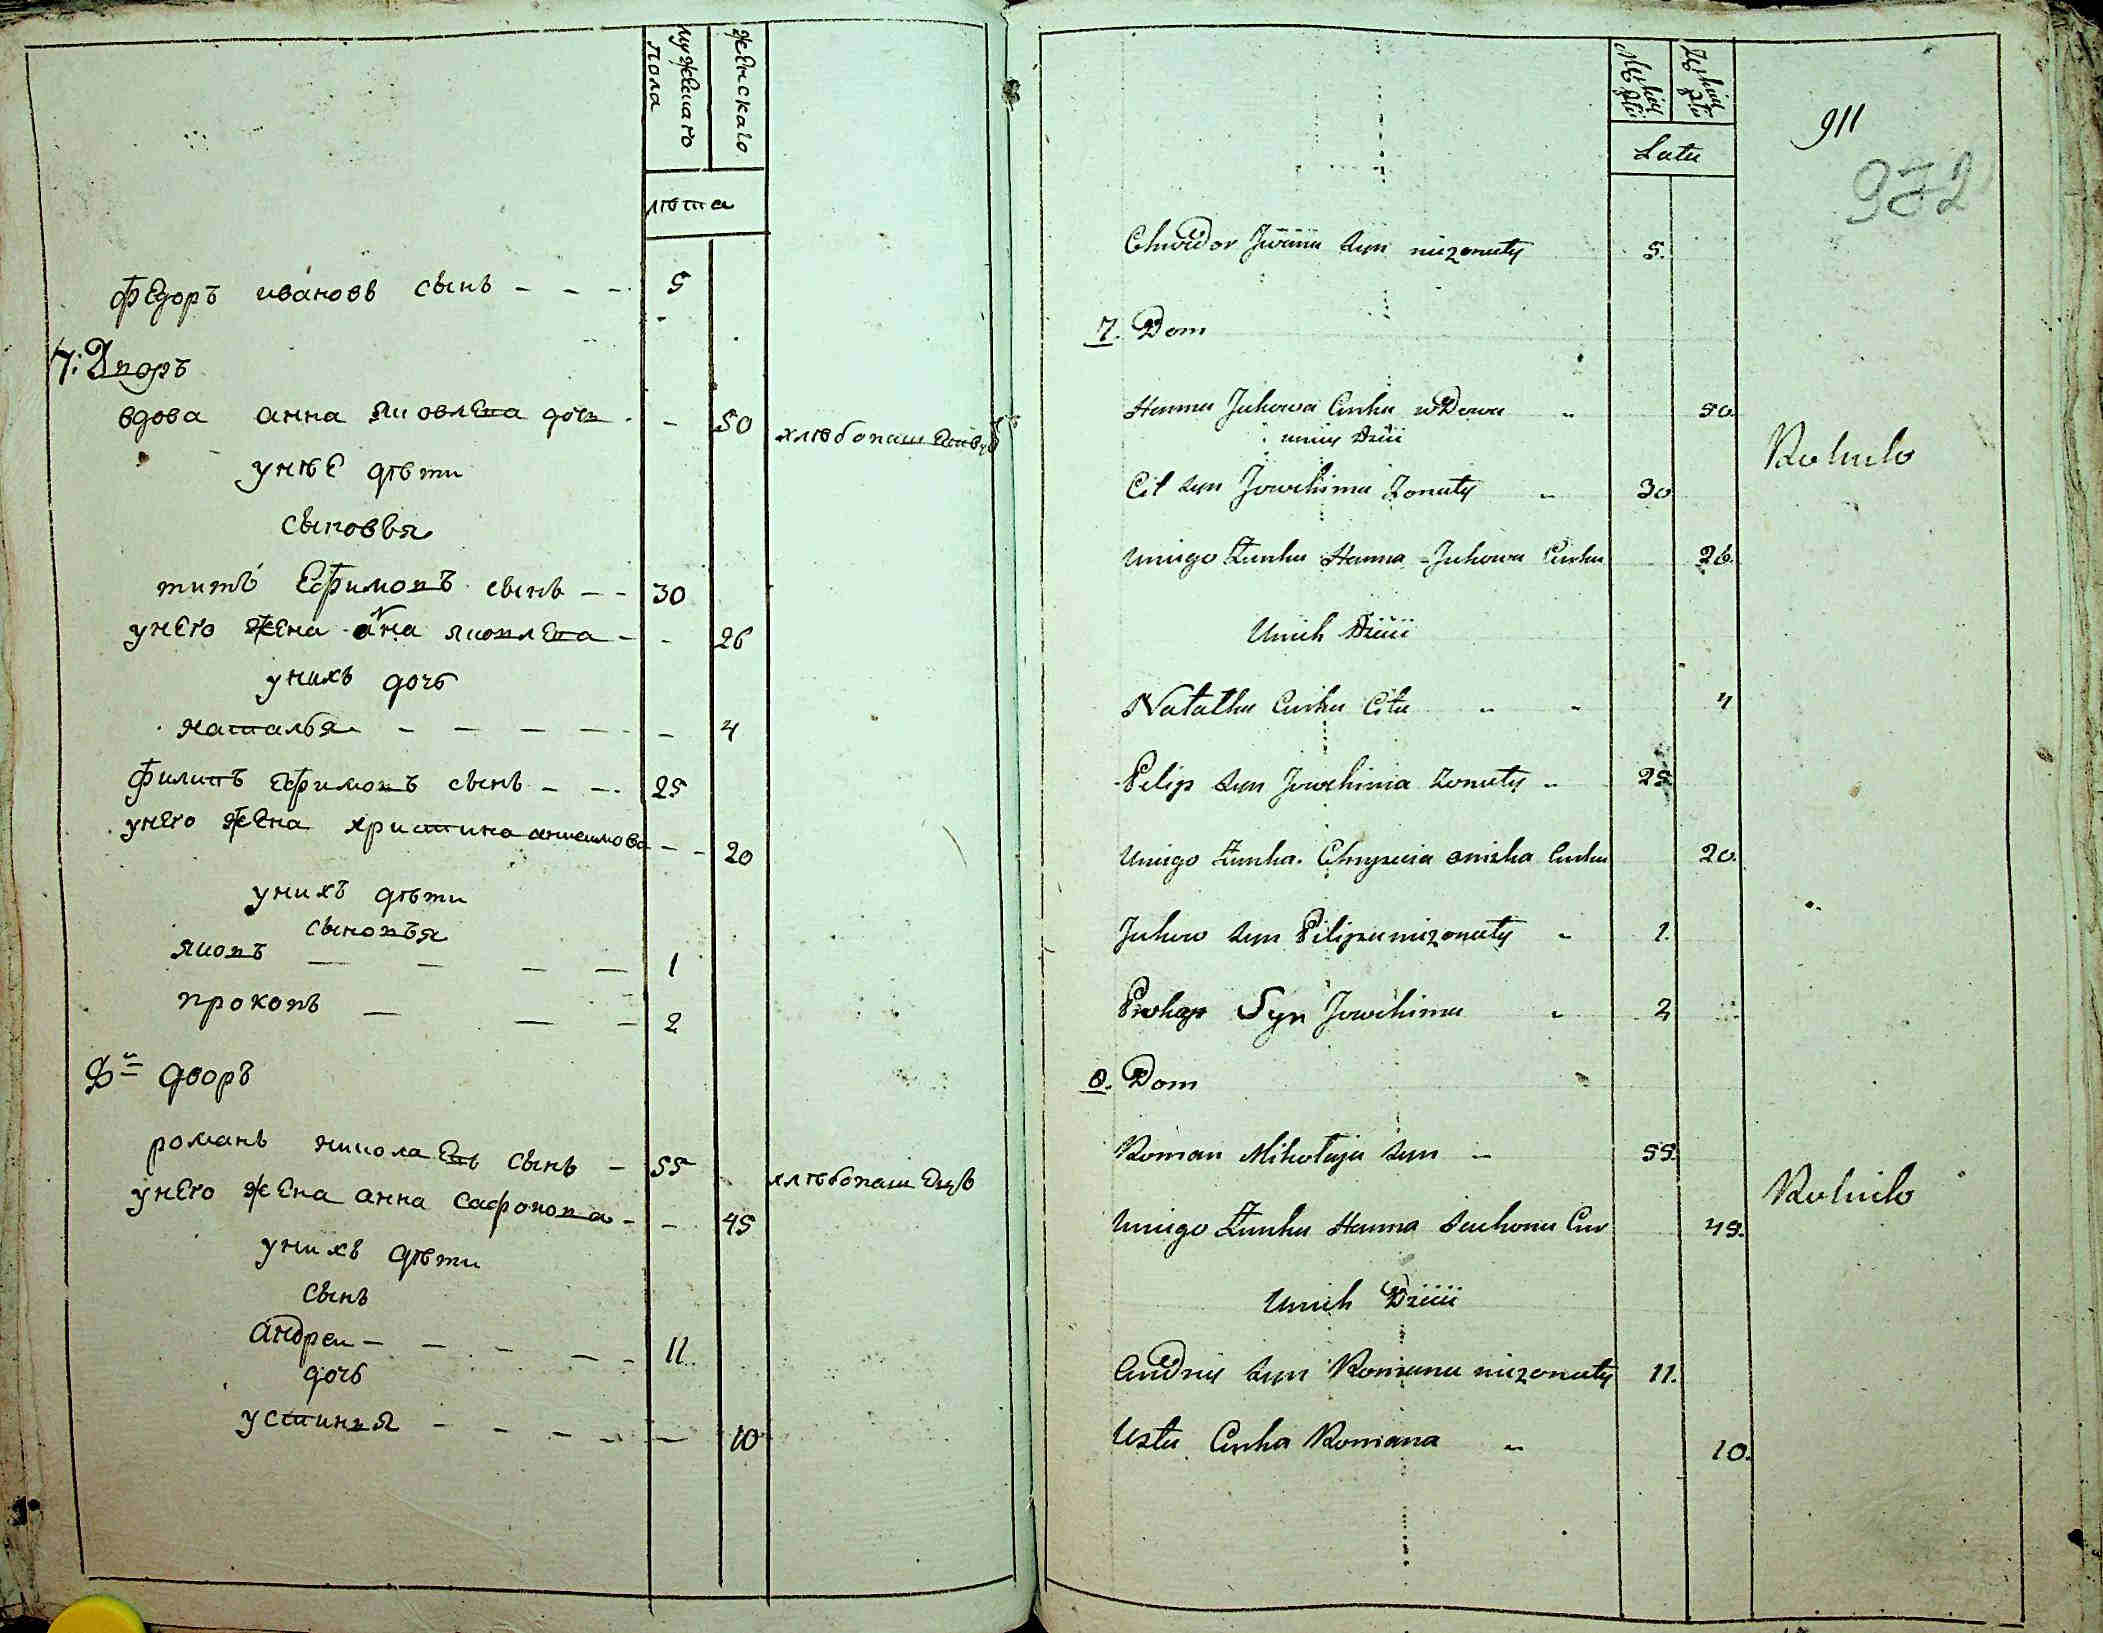 мужескаго
пола
женскаго
лѣта
федоръ ивановъ сынъ - - - 5
7: Дворъ
вдова анна яковлева дочь - - 50 хлѣбопашецъ
унѣе дѣти
сыновья
титъ Ефимовъ сынъ - - 30
унего жена анна яковлева - - 26
унихъ дочь
наталья - - - - - - 4
филипъ Ефимовъ сынъ - - - 25
унего жена христина - - 20
унихъ дѣти
сыновья
яковъ - - - - 1
прокопъ - - - 2
8й дворъ
романъ николаевъ сынъ - 55 хлѣбопашецъ
унего жена анна сафонова - - 45
унихъ дѣти
сынъ
андреи - - - - - 11
дочь
устинья - - - - - - 10
911
972
Latu
Chwidor Jwana syn niezonaty 5.
7. Dom
Hanna Jakowa Curka wDowa " 50.
unieiy Dzieii
Cit syn Jowchima Zonaty " 30 Rolnik
Uniego Zunka Hanna Jakowa Curka 26.
Unich Dzieii
Natalka Curka Cita " " 4
Pilip syn Jowchima Zonaty " 25
Uniego Zunka Curka 20.
Jakow syn Pilipa niezonaty " 1.
Prokop Syn Jowchima " 2
8. Dom
Roman Mikołaja syn " 55. Rolnik
Uniego Zunka Hanna Sachona Cur 45.
Unich Dzieii
Andriy syn Romana niezonaty 11.
Usta Curka Romana " 10.